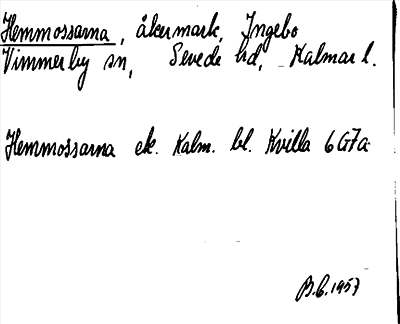 Hemmossarna, åkermark, Ingebo
Vimmerby sn, Sevede hd, Kalmar l.
Hemmossarna ek. Kalm. bl. Kvilla 6G7a
B.C. 1957